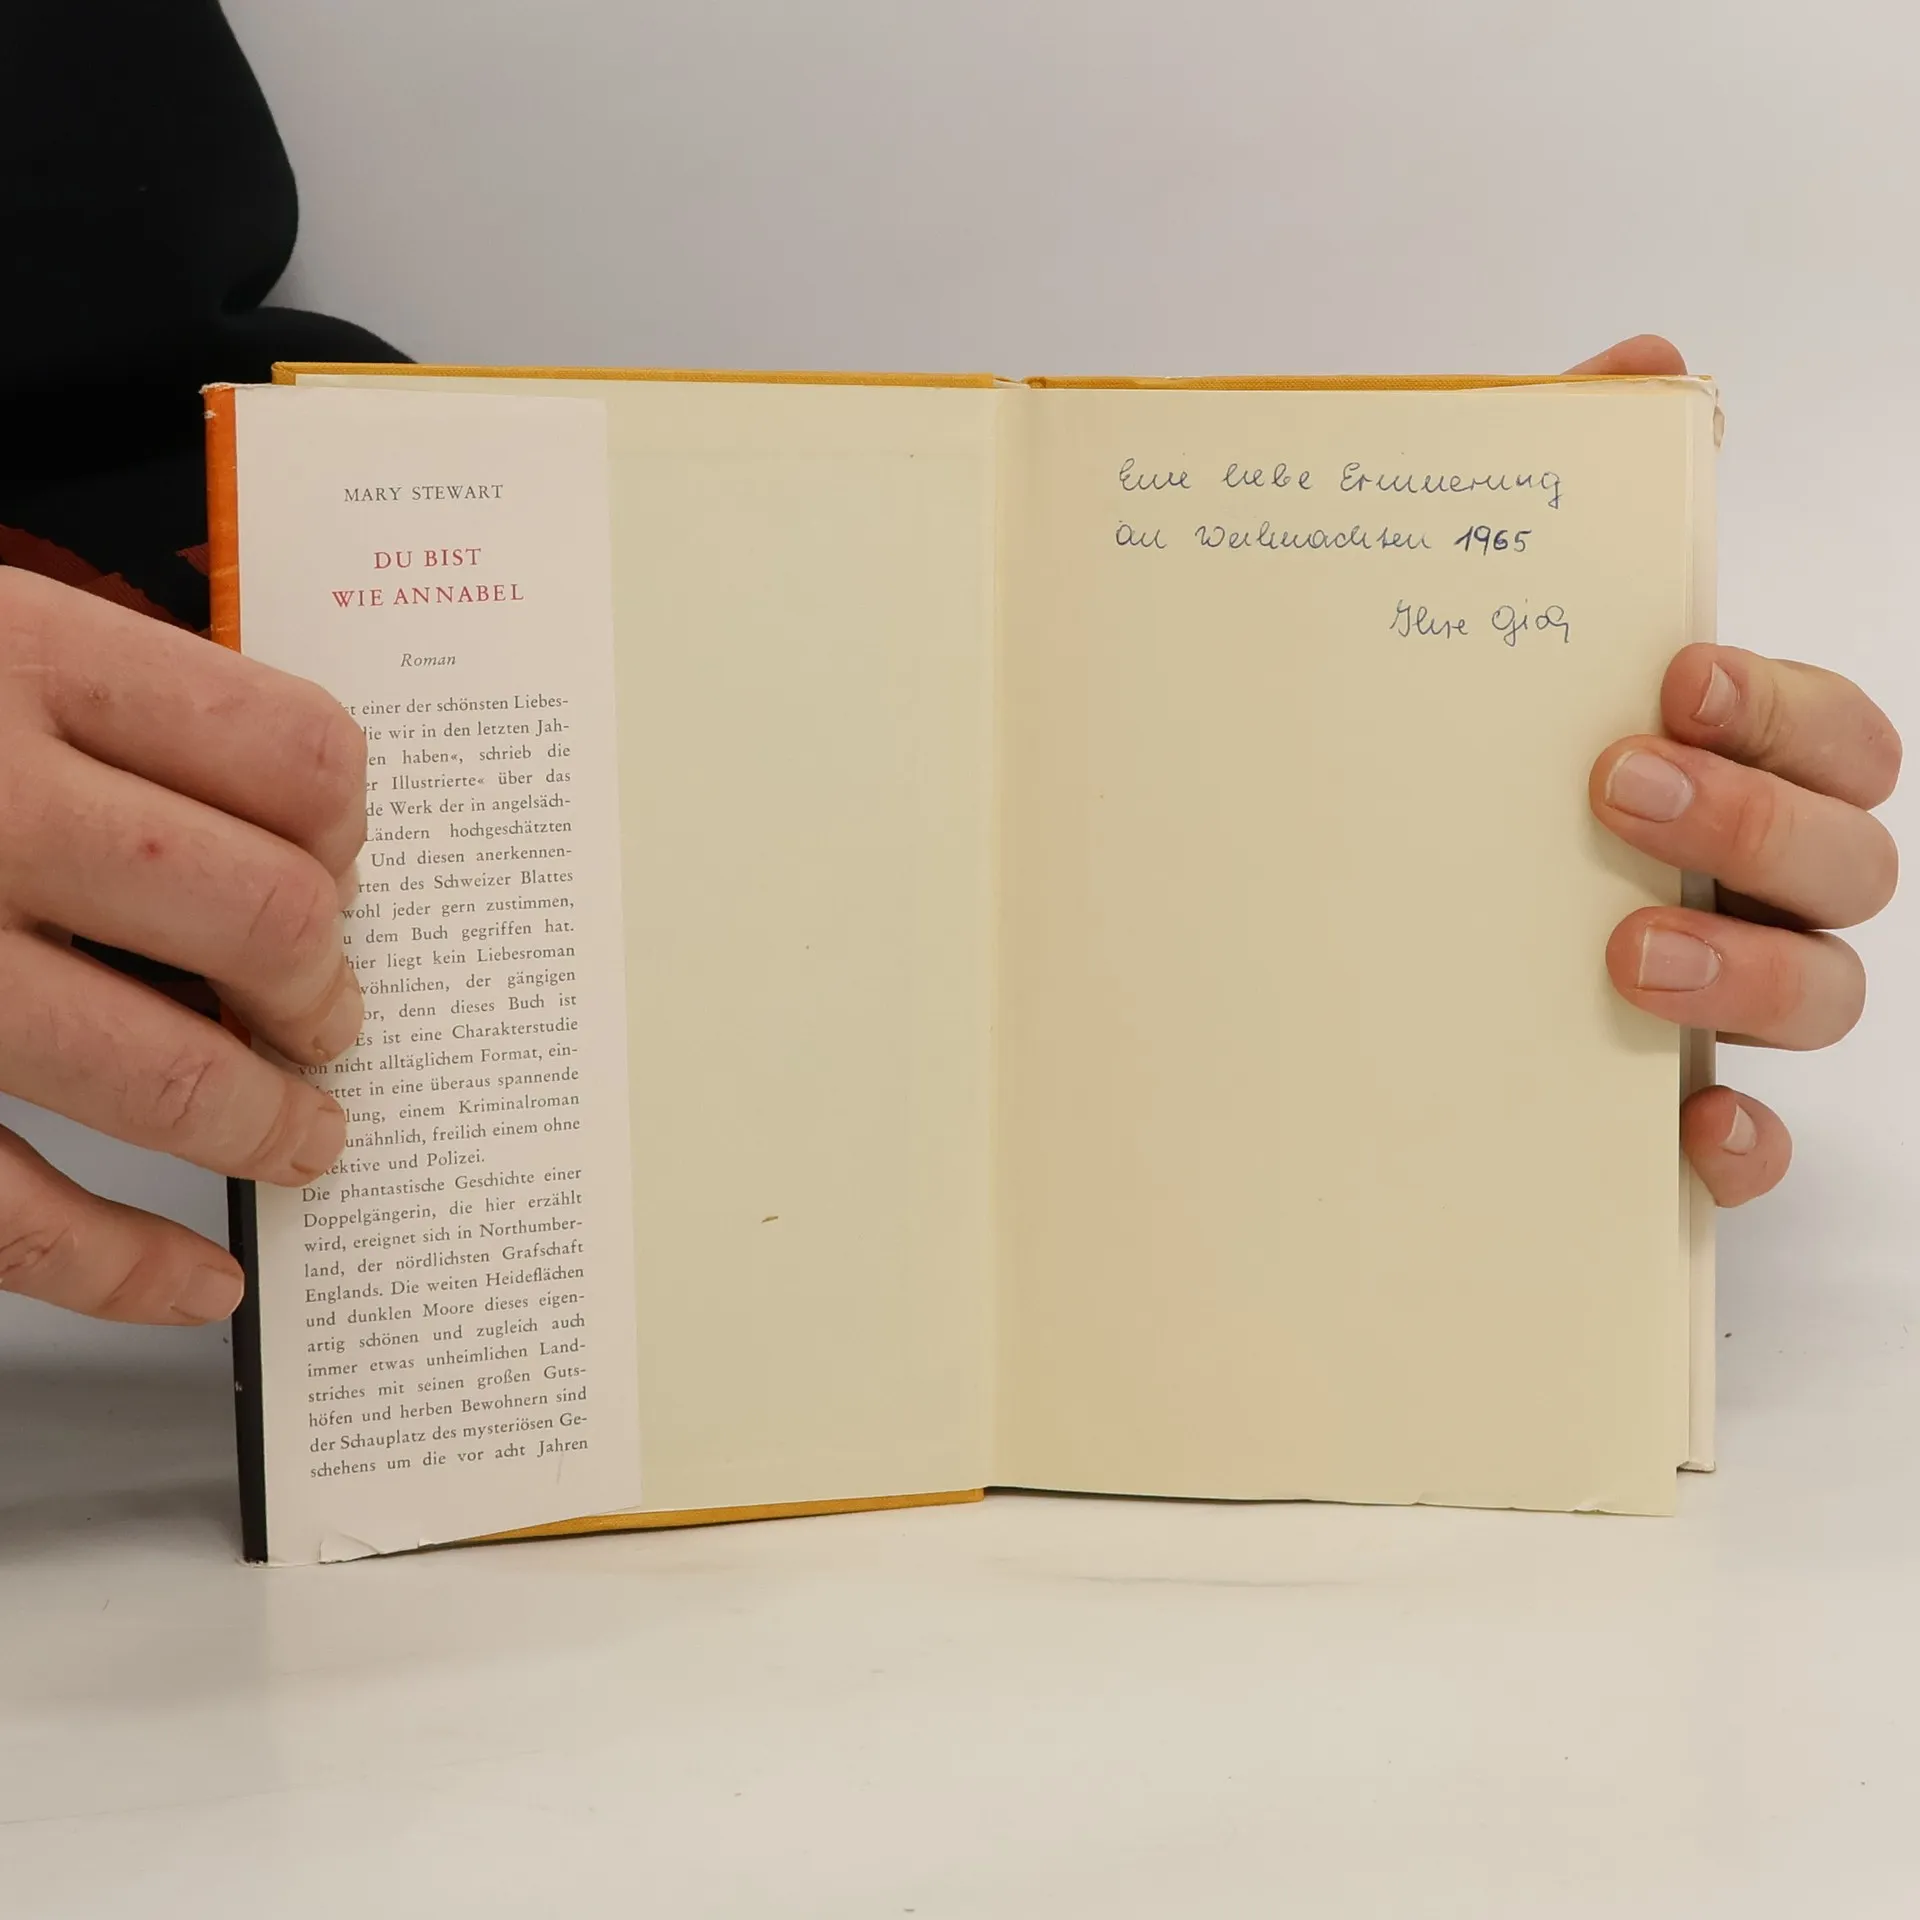 MARY STEWART
DU BIST
WIE ANNABEL
Roman
st einer der schönsten Liebes-
die wir in den letzten Jah-
en haben«, schrieb die
er Illustrierte« über das
de Werk der in angelsäch-
Ländern hochgeschätzten
Und diesen anerkennen-
rten des Schweizer Blattes
wohl jeder gern zustimmen,
u dem Buch gegriffen hat.
hier liegt kein Liebesroman
wöhnlichen, der gängigen
or, denn dieses Buch ist
Es ist eine Charakterstudie
von nicht alltäglichem Format, ein-
ettet in eine überaus spannende
lung, einem Kriminalroman
unähnlich, freilich einem ohne
ektive und Polizei.
Die phantastische Geschichte einer
Doppelgängerin, die hier erzählt
wird, ereignet sich in Northumber-
land, der nördlichsten Grafschaft
Englands. Die weiten Heideflächen
und dunklen Moore dieses eigen-
artig schönen und zugleich auch
immer etwas unheimlichen Land-
striches mit seinen großen Guts-
höfen und herben Bewohnern sind
der Schauplatz des mysteriösen Ge-
schehens um die vor acht Jahren
Eine liebe Erinnerung
an Weihnachten 1965
Ihre